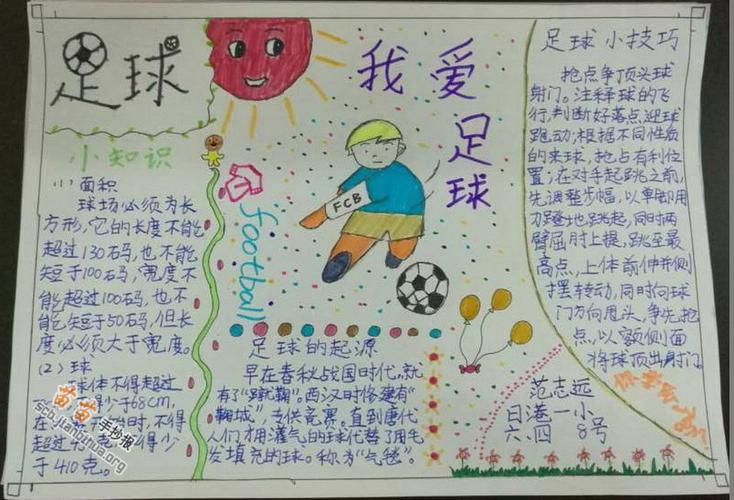 足球
小知识
(1) 面积
球场必须为长
方形，它的长度不能
超过130码，也不能
短于100码，宽度不
能超过100码，也不
能短于50码，但长
度必须大于宽度。
(2) 球
球体不得超过
少于68cm，
时，不得
超过
得少
于410克。
苗苗
手抄报
scb.jiangzhua.org
我爱
足球
football
FCB
足球的起源
早在春秋战国时代，就
有了“蹴鞠”。西汉时修建有“
鞠城”，专供竞赛。直到唐代
人们才用灌气的球代替了用毛
发填充的球。称为“气毬”。
足球小技巧
抢点争顶头球
射门。注释球的飞
行，判断好落点迎球
跑动，根据不同性质
的来球，抢占有利位
置，在对手起跳之前，
先调整步幅，以单脚用
力蹬地跳起，同时两
臂屈肘上提，跳至最
高点，上体前伸并侧
摆转动，同时向球
门方向甩头，争先抢
点，以额侧面
将球顶出射门。
范志远
日港一小
六、四 8号